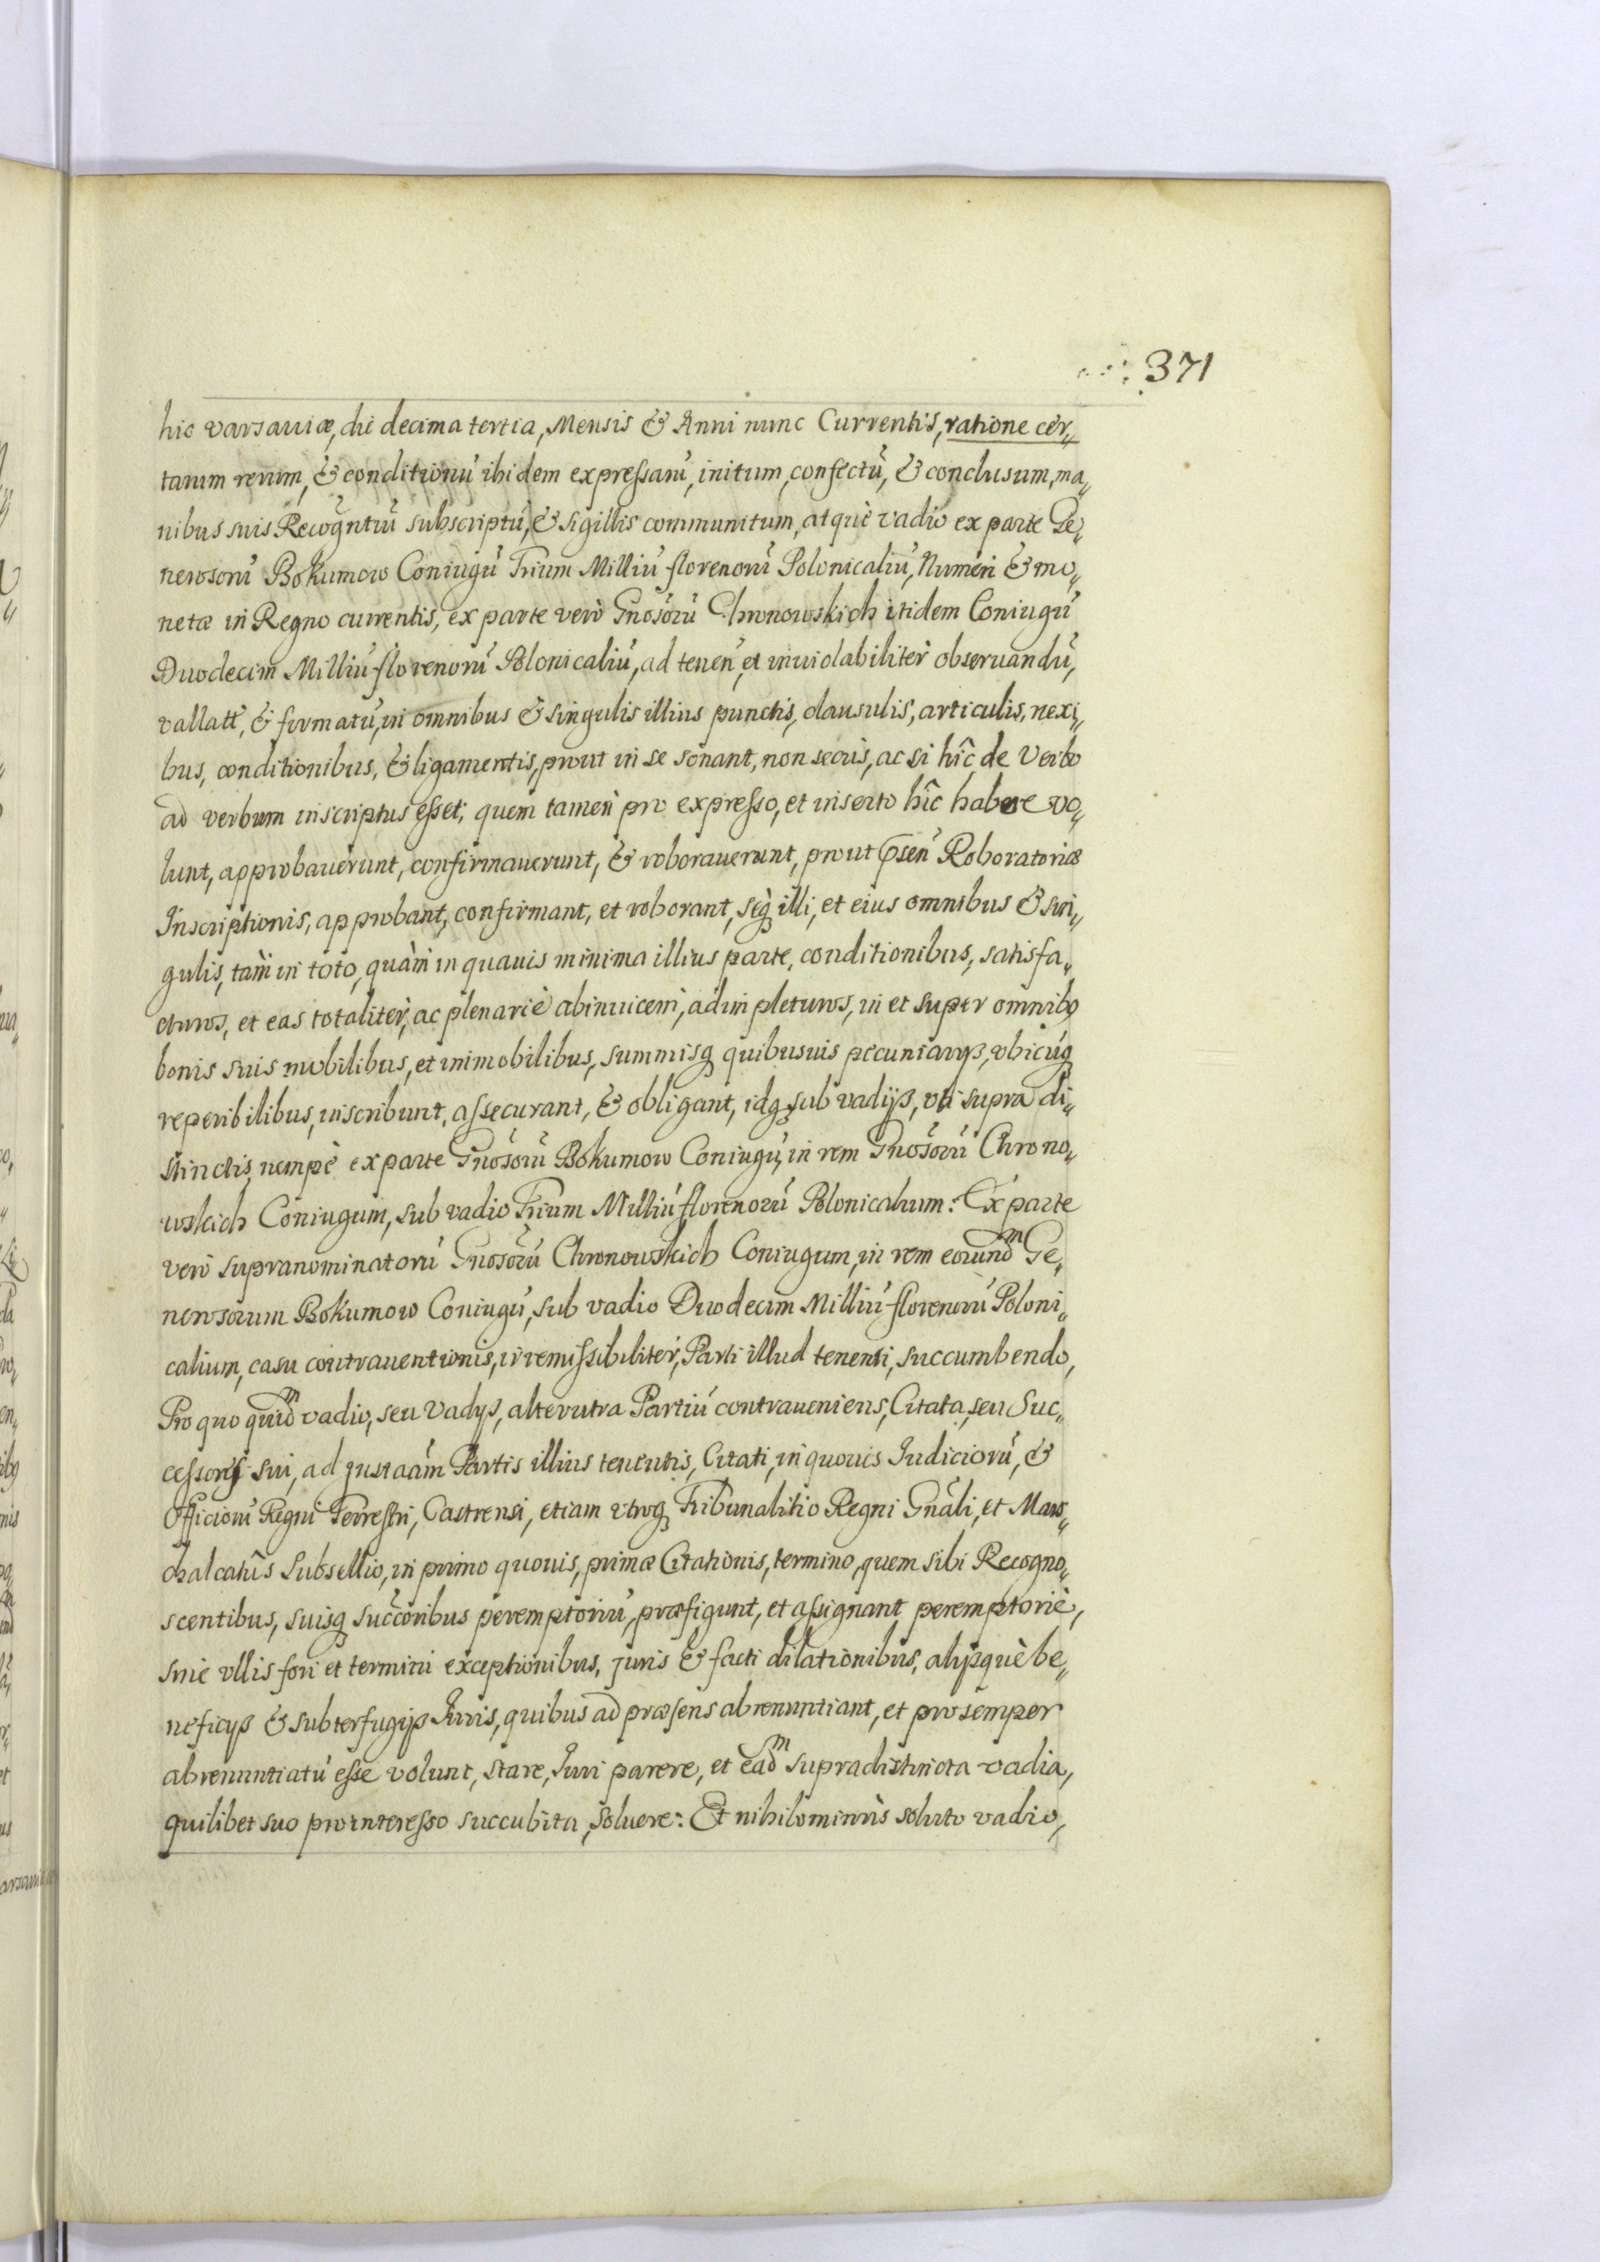 371
hic varsauiæ, die decima tertia, Mensis & Anni nunc Currentis, ratione cer„
tarum rerum, & conditionū ibidem expressarū, initum, confectū, & conclusum, ma„
nibus suis Recogntiū subscriptū, & sigillis communitum, atquè vadio ex parte Ge„
nerosorū Bokumow Coniugū Trium Milliū florenorū Polonicaliū, Numeri & mo„
netæ in Regno currentis, ex parte verò Gnosorū Chronowskich itidem Coniugū
Duodecim Milliū florenorū Polonicaliū, ad tenen̄, et inuiolabiliter obseruandū,
vallatū, & firmatū, in omnibus & singulis illius punctis, clausulis, articulis, nexi„
bus, conditionibus, & ligamentis, prout in se sonant, non secùs, ac si hîc de Verbo
ad verbum inscriptus esset; quem tamen pro expresso, et inserto hîc habere vo„
lunt, approbauerunt, confirmauerunt, & roborauerunt, prout p̄sen̄ Roboratoriæ
Inscriptionis, approbant, confirmant, et roborant, seq illi, et eius omnibus & sin„
gulis, tàm in toto, quàm in quauis minima illius parte, conditionibus, satisfa„
cturos, et eas totaliter, ac plenariè abinuicem, adimpleturos, in et super omnibq
bonis suis mobilibus, et immobilibus, summisq quibusuis pecuniarys, vbicūq
reperibilibus, inscribunt, assecurant, & obligant, idq sub vadijs, vti supra di„
stinctis, nempè ex parte Gnosorū Bokumow Coniugū, in rem Gnosorū Chrono„
wskich Coniugum, sub vadio Trium Milliū florenorū Polonicalium: Ex parte
verò supranominatorū Gnosorū Chronowskich Coniugum, in rem eorundm Ge„
nerosorum Bokumow Coniugū, sub vadio Duodecim Milliū florenorū Poloni„
calium, casu contrauentionis, irremissibiliter, Parti illud tenenti, succumbendo,
Pro quo quidm vadio, seu Vadys, alterutra Partiū contraueniens, Citata, seu Suc„
cessores sui, ad Instaām Partis illius tenentis, Citati, in quouis Iudiciorū, &
Officiorū Regni Terrestri, Castrensi, etiam vtroq Tribunalitio Regni Gnāli, et Mars„
chalcatûs Subsellio, in primo quouis, primæ Citationis, termino, quem sibi Recogno„
scentibus, suisq succ̄oribus peremptoriū, præfigunt, et assignant peremptoriè,
sine vllis fori et termini exceptionibus, juris & facti dilationibus, alijsquè be„
neficys & subterfugijs Iuris, quibus ad præsens abrenuntiant, et pro semper
abrenuntiatū esse volunt, stare, Iuri parere, et eadm supradistincta vadia,
quilibet suo pro interesso succubita, soluere: Et nihilominùs soluto vadio,